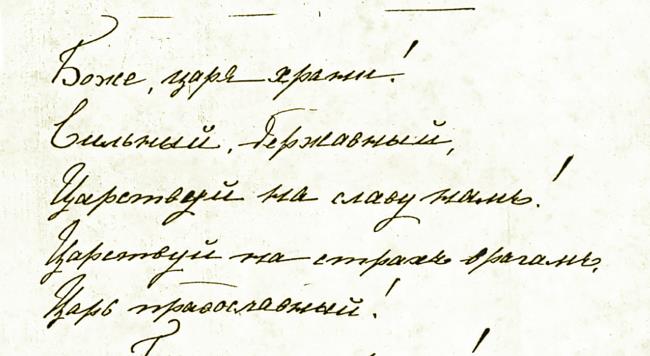 Боже, царя храни!
Сильный, Державный,
Царствуй на славу намъ!
Царствуй на страхъ врагамъ,
Царь православный!